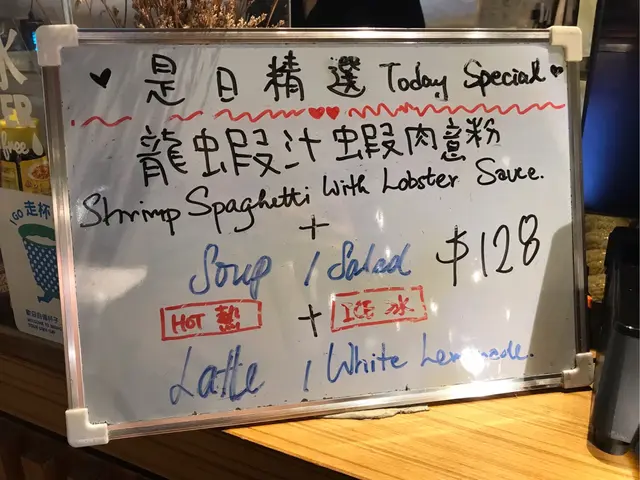 ♥ 是日精選 Today Special ♥
龍蝦汁蝦肉意粉
Shrimp Spaghetti With Lobster Sauce.
+
Soup / Salad $128
HOT 熱 + ICE 冰
Latte / White Lemonade.
水
free
GO 走杯